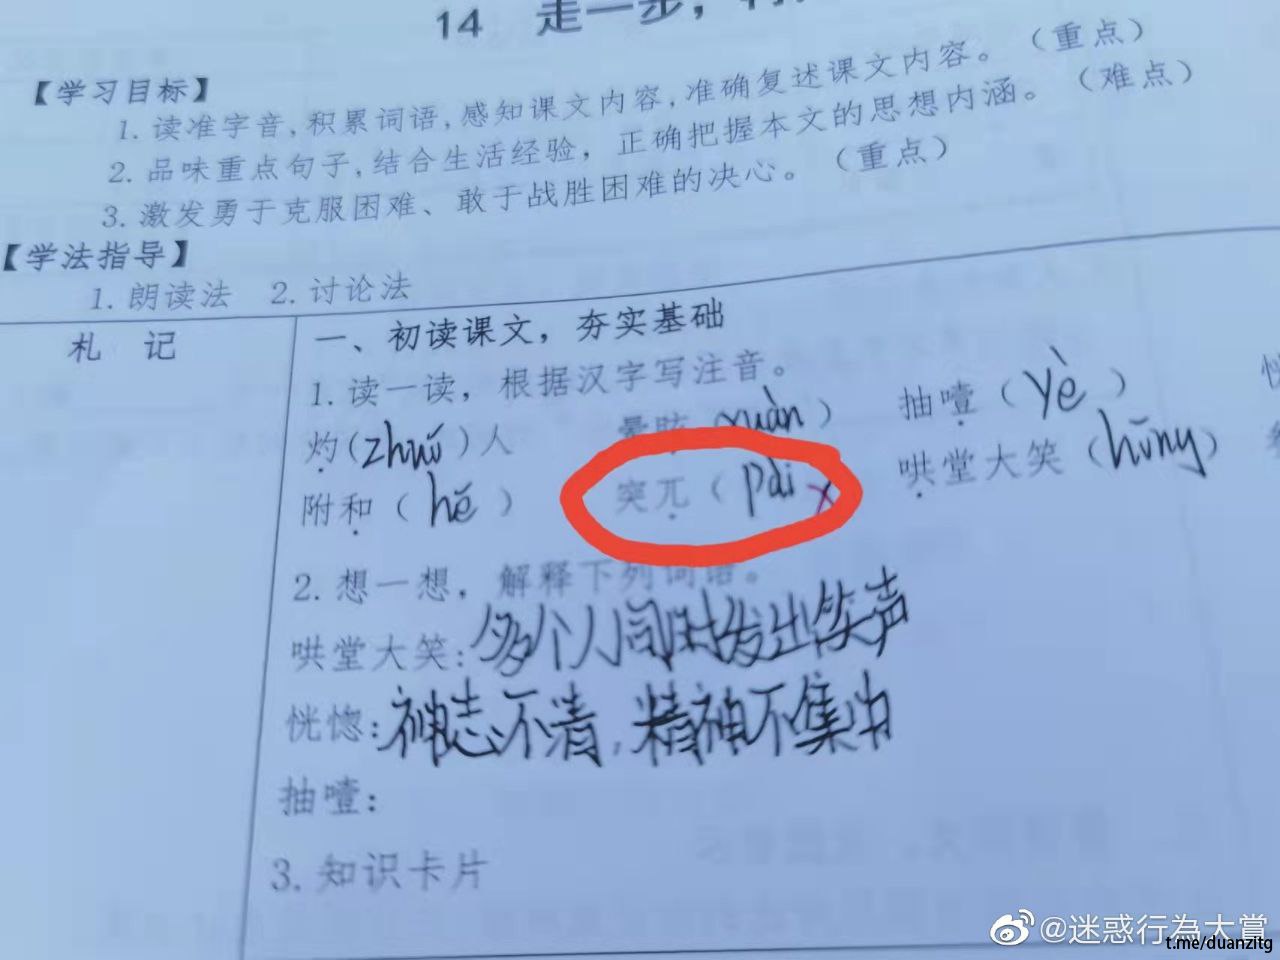 14 走一步，
【学习目标】
1. 读准字音,积累词语,感知课文内容,准确复述课文内容。（重点）
2. 品味重点句子,结合生活经验，正确把握本文的思想内涵。（难点）
3. 激发勇于克服困难、敢于战胜困难的决心。（重点）
【学法指导】
1. 朗读法 2. 讨论法
札 记
一、初读课文，夯实基础
1. 读一读，根据汉字写注音。
灼(zhuó)人 晕眩(xuàn) 抽噎(yè)
附和(hě) 突兀(pài × 哄堂大笑(hǒng)
2. 想一想，解释下列词语。
哄堂大笑:多个人同时发出笑声
恍惚:神志不清,精神不集中
抽噎:
3. 知识卡片
@迷惑行為大賞
t.me/duanzitg